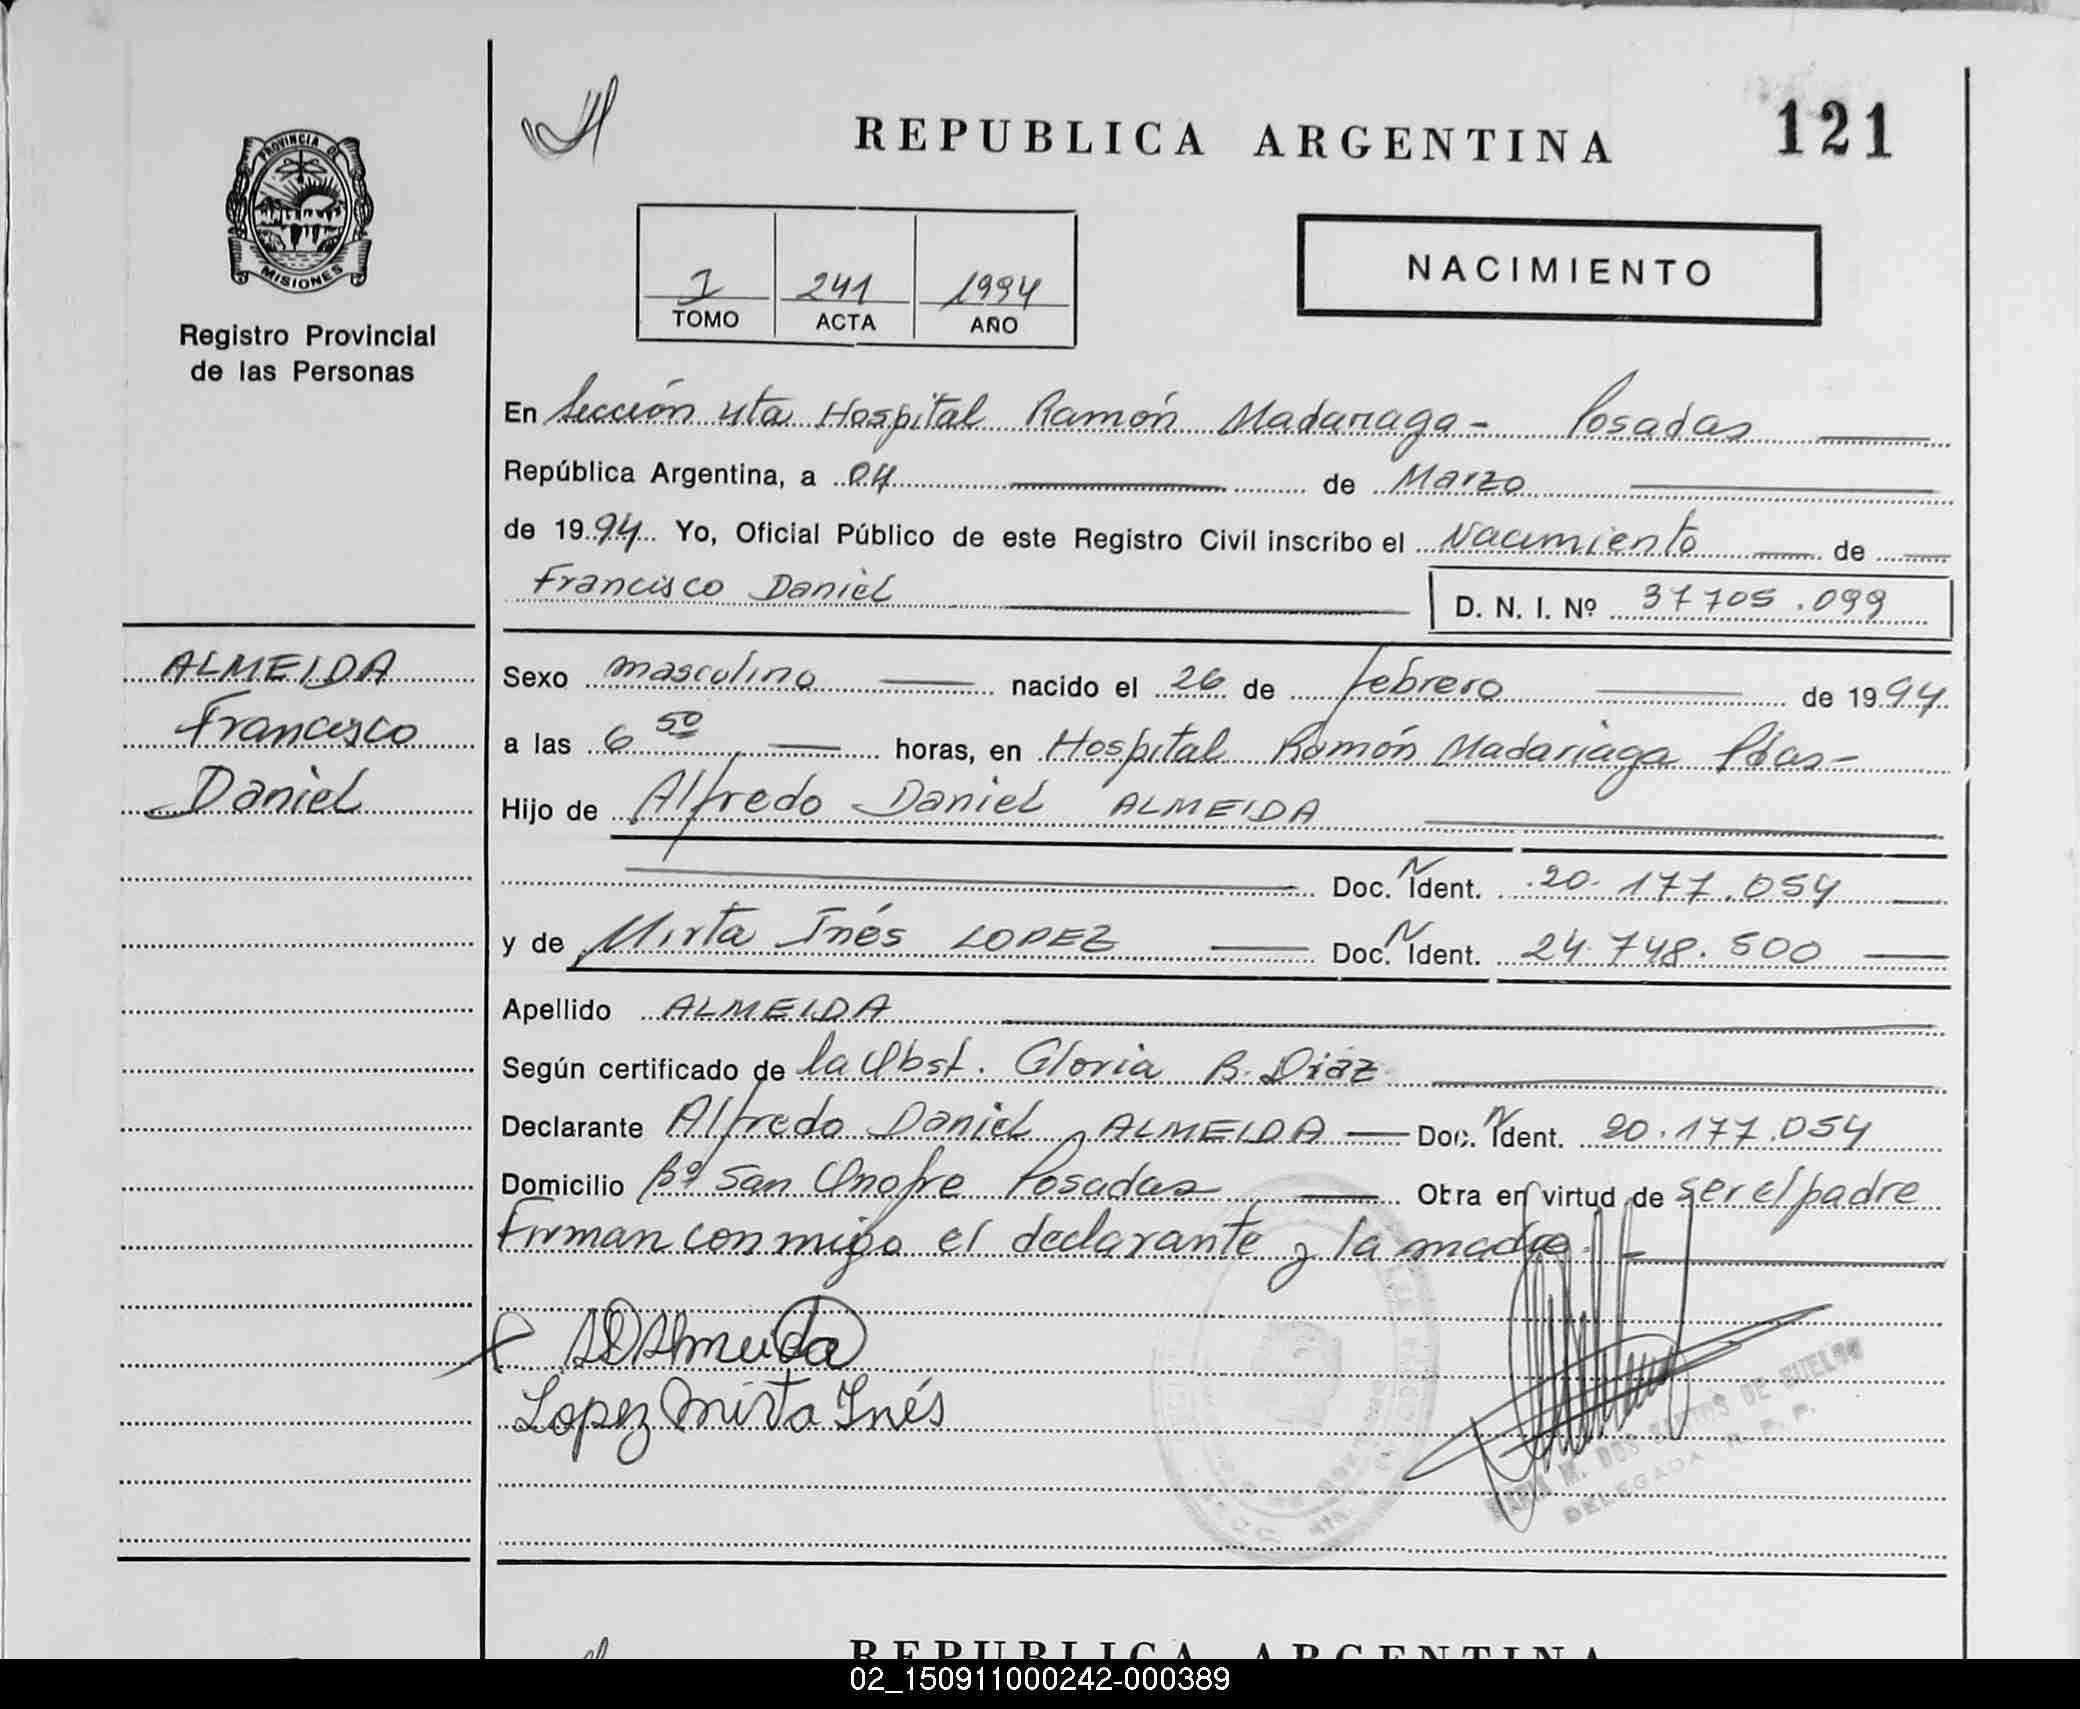 REPUBLICA ARGENTINA
121
PROVINCIA DE
MISIONES
Registro Provincial
de las Personas
1 241 1994
TOMO ACTA AÑO
NACIMIENTO
En Sección 4ta Hospital Ramón Madariaga - Posadas
República Argentina, a 04 de Marzo
de 1994 Yo, Oficial Público de este Registro Civil inscribo el Nacimiento de
Francisco Daniel D. N. I. Nº 37705.099
ALMEIDA
Francisco
Daniel
Sexo masculino nacido el 26 de febrero de 1994
a las 6 50 horas, en Hospital Ramón Madariaga Pdas-
Hijo de Alfredo Daniel ALMEIDA
Doc. N Ident. 20.177.054
y de Mirta Inés LOPEZ Doc. N Ident. 24.748.500
Apellido ALMEIDA
Según certificado de la Obst. Gloria B. Diaz
Declarante Alfredo Daniel ALMEIDA Doc. N Ident. 20.177.054
Domicilio Bº San Onofre Posadas Obra en virtud de ser el padre
Firman conmigo el declarante y la madre. -
AD Almeida
Lopez Mirta Inés
M. DOS SANTOS DE
DELEGADA R. P. P.
REPUBLICA ARGENTINA
02_150911000242-000389